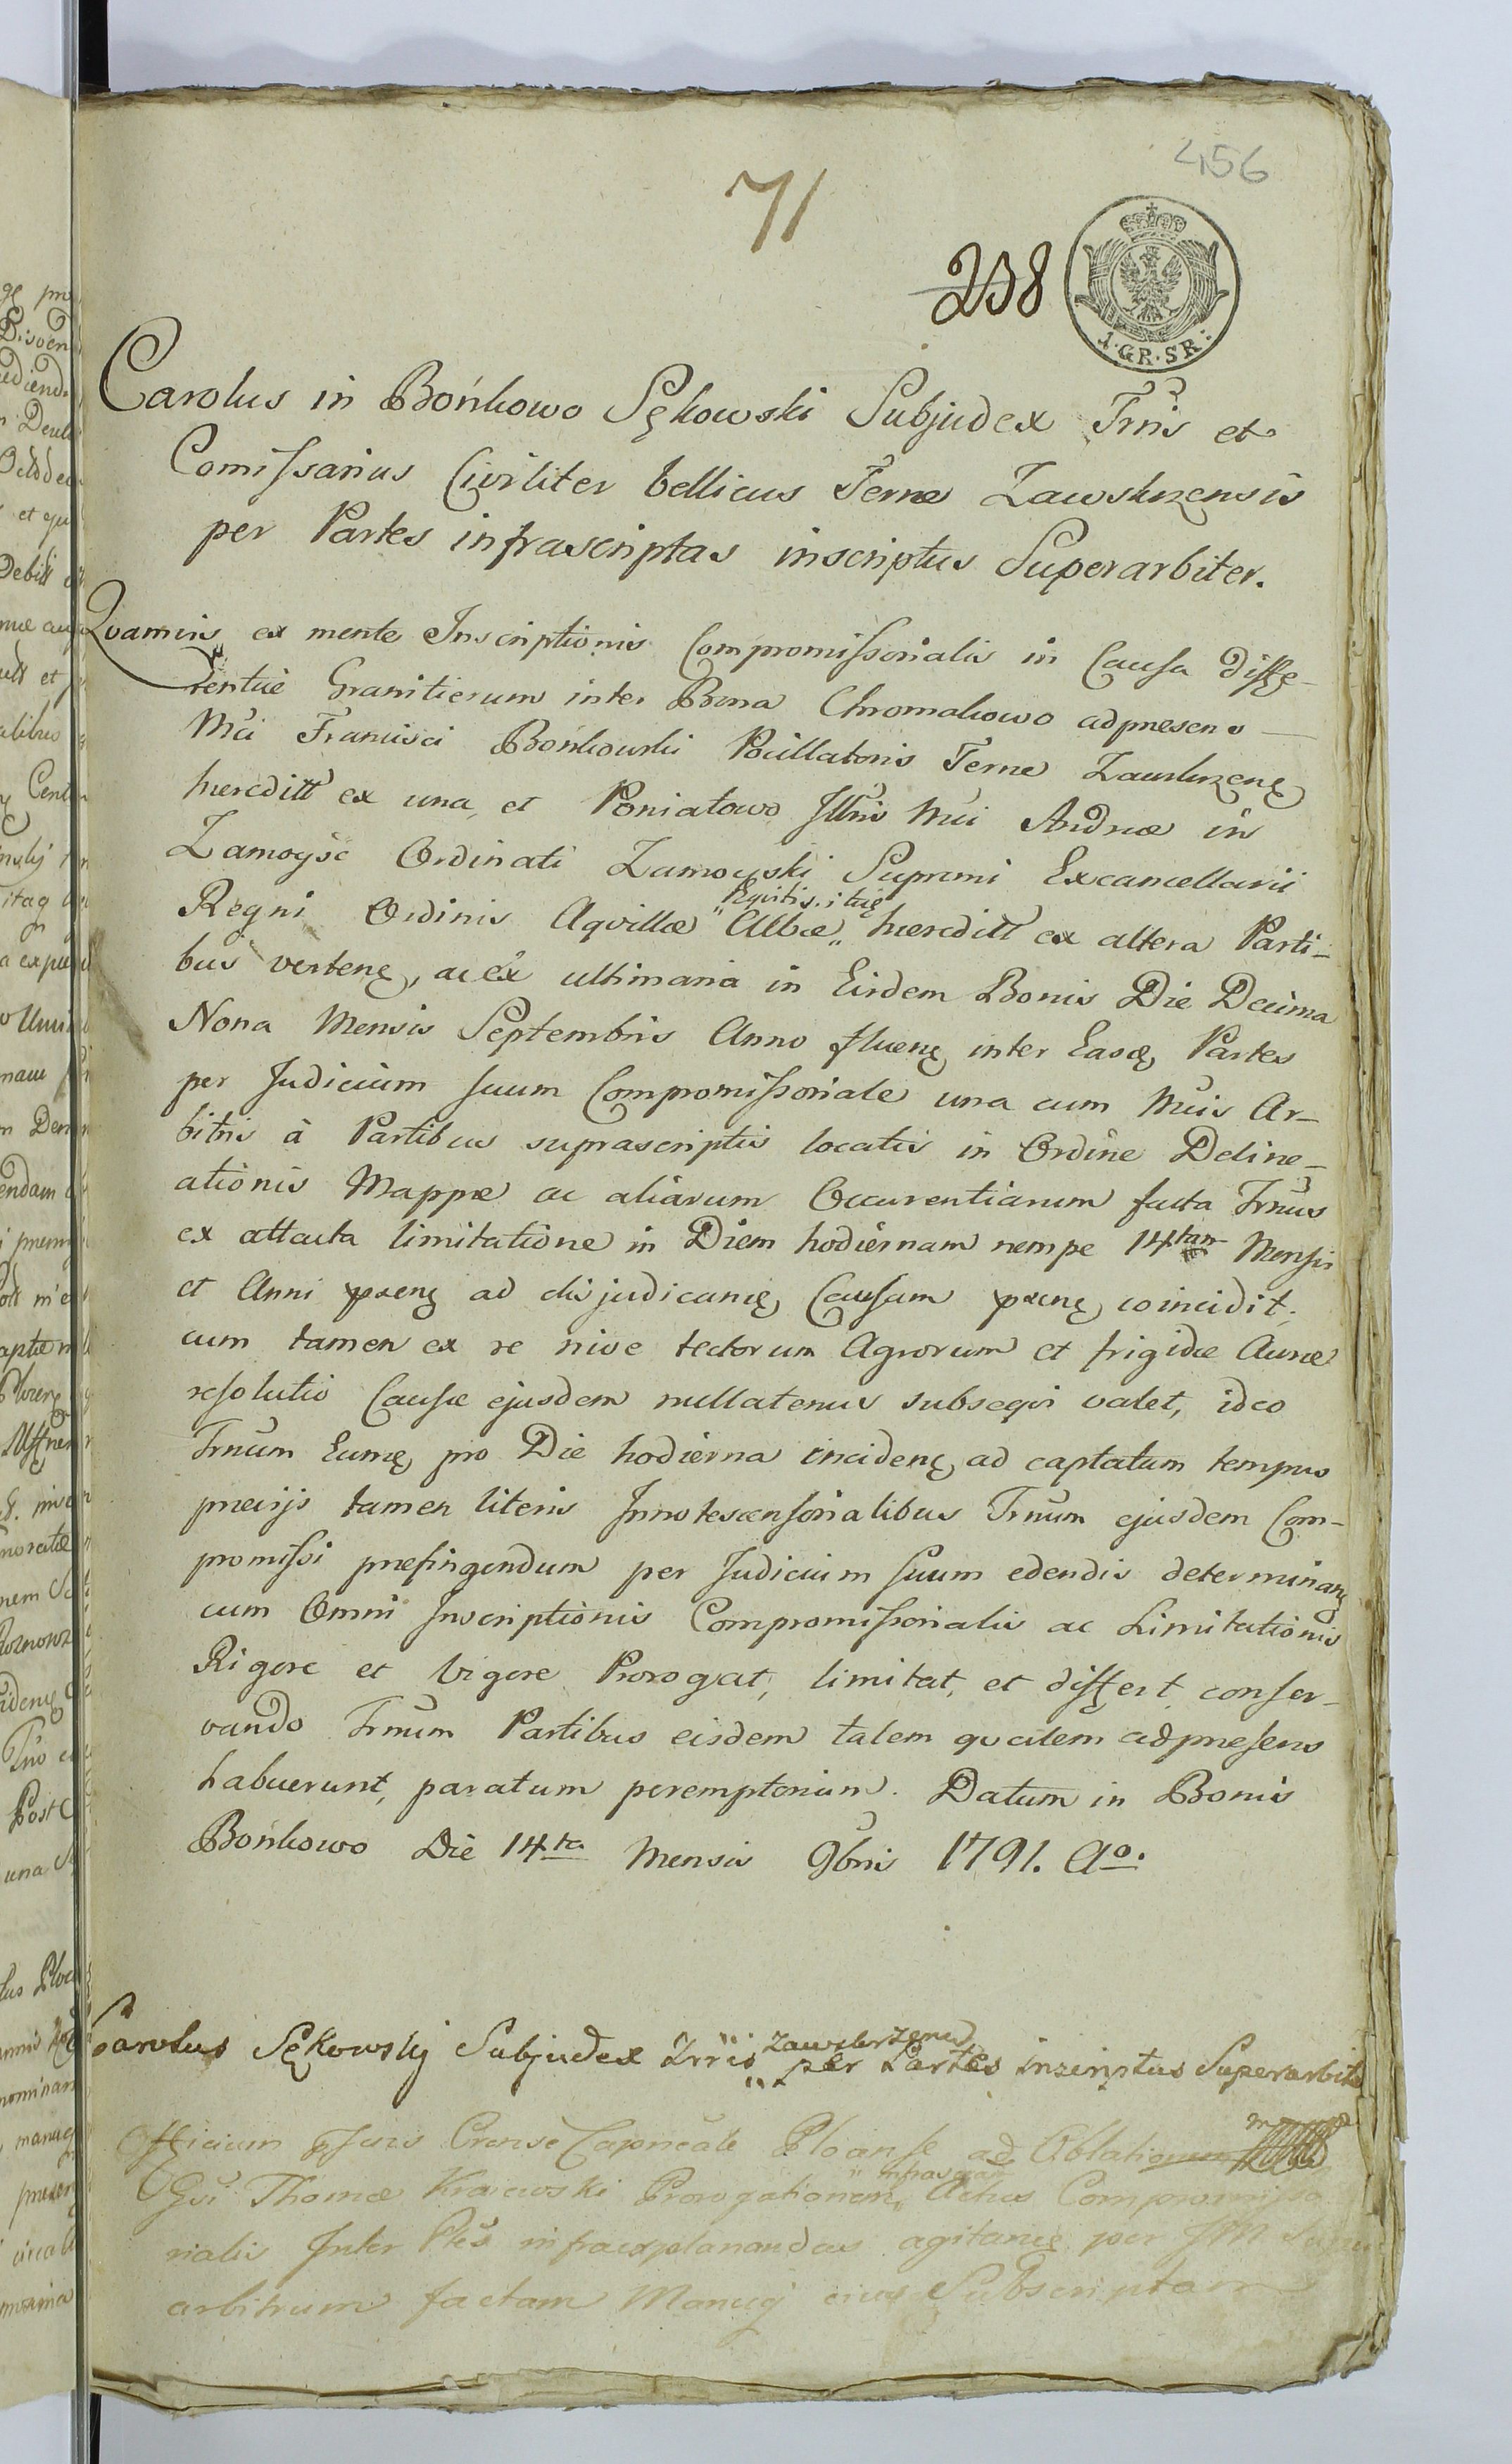 456
71
238
1.GR.SR:
Carolus in Bońkowo Sękowski Subjudex Trris et
Comissarius Civiliter bellicus Terræ Zawskrzensis
per Partes infrascriptas inscriptus Superarbiter.
Qvamvis ex mente Inscriptionis Compromissorialis in Causa diffe-
rentiæ Granitierum inter Bona Chromakowo adpræsens
Mci Francisci Bońkowski Pocillatoris Terræ Zawskrzenę
hæreditt ex una, et Poniatowo Illris Mci Andreæ in
Zamoyśc Ordinati Zamoyski Supremi Excancellarii
Eqvitis, itię
Regni Ordinis Aqvillæ „Albæ„ hæreditt ex altera Parti-
bus vertenę, ac ex ultimaria in Eisdem Bonis Die Decima
Nona Mensis Septembris Anno fluenę inter Easdę Partes
per Judicium suum Compromissoriale una cum Mcis Ar-
bitris à Partibus suprascriptis locatis in Ordine Deline-
ationis Mappæ ac aliarum Occurentiarum facta Trnus
ex attacta limitatione in Diem hodiernam nempe 14tam Mensis
et Anni præsenę ad disjudicanę Causam prænę coincidit,
cum tamen ex re nive tectorum Agrorum et frigidæ Auræ
resolutio Causæ ejusdem nullatenus subseqvi valet, ideo
Trnum Eumę pro Die hodierna incidenę ad captatum tempus
prævijs tamen literis Innotescensorialibus Trnum ejusdem Com-
promissi præfingendum per Judicium suum edendis determinanę
cum Omni Inscriptionis Compromissorialis ac Limitationis
Rigore et Vigore Prorogat, limitat, et differt conser-
vando Trnum Partibus eisdem talem qvalem adpræsens
habuerunt, paratum peremptorium. Datum in Bonis
Bońkowo Die 14ta Mensis 9bris 1791. Ao.
Zawskrzens
Carolus Sękowskij Subjudex Trris „ per Partes inscriptus Superarbite
Officium Castrense Capneale Plocense ad Oblationem
infrascrip
Gsi Thomæ Kraiewski Prorogationem„ Actus Compromisso
rialis Inter Ptes infraexplanandas agitanę per
arbitrum factam Manuq eius Subscriptam